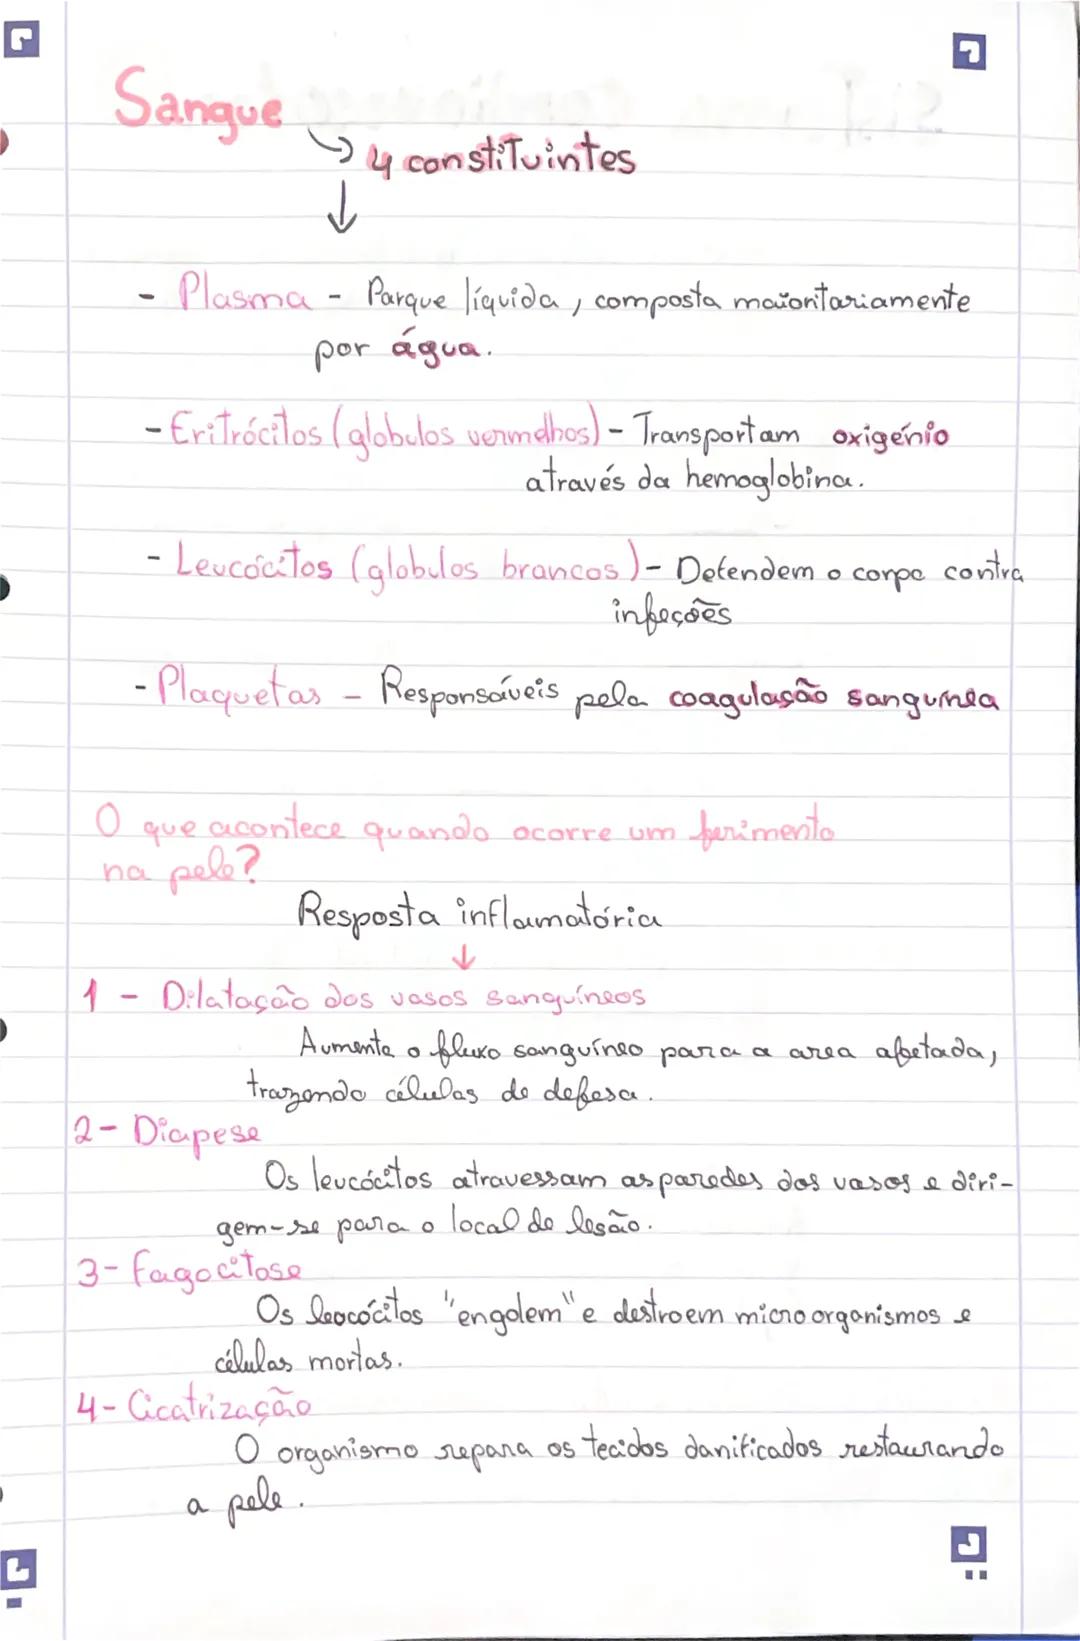 Sangue
4 constituintes
- Plasma - Parque líquida, composta maioritariamente
por água.
- Eritrócitos (globulos vermelhos) - Transportam oxigénio
através da hemoglobina.
- Leucócitos (globulos brancos) - Defendem o corpo contra
infeções
- Plaquetas - Responsáveis pela coagulação sanguínea
O que acontece quando ocorre um ferimento
na pele?
Resposta inflamatória
1 - Dilatação dos vasos sanguíneos
Aumenta o fluxo sanguíneo para a area afetada,
trazendo células de defesa.
2- Diapese
Os leucócitos atravessam as paredes dos vasos e diri-
gem-se para o local de lesão.
3- Fagocitose
Os leocócitos "engolem" e destroem microorganismos e
células mortas.
4- Cicatrização
O organismo repara os tecidos danificados restaurando
a pele.